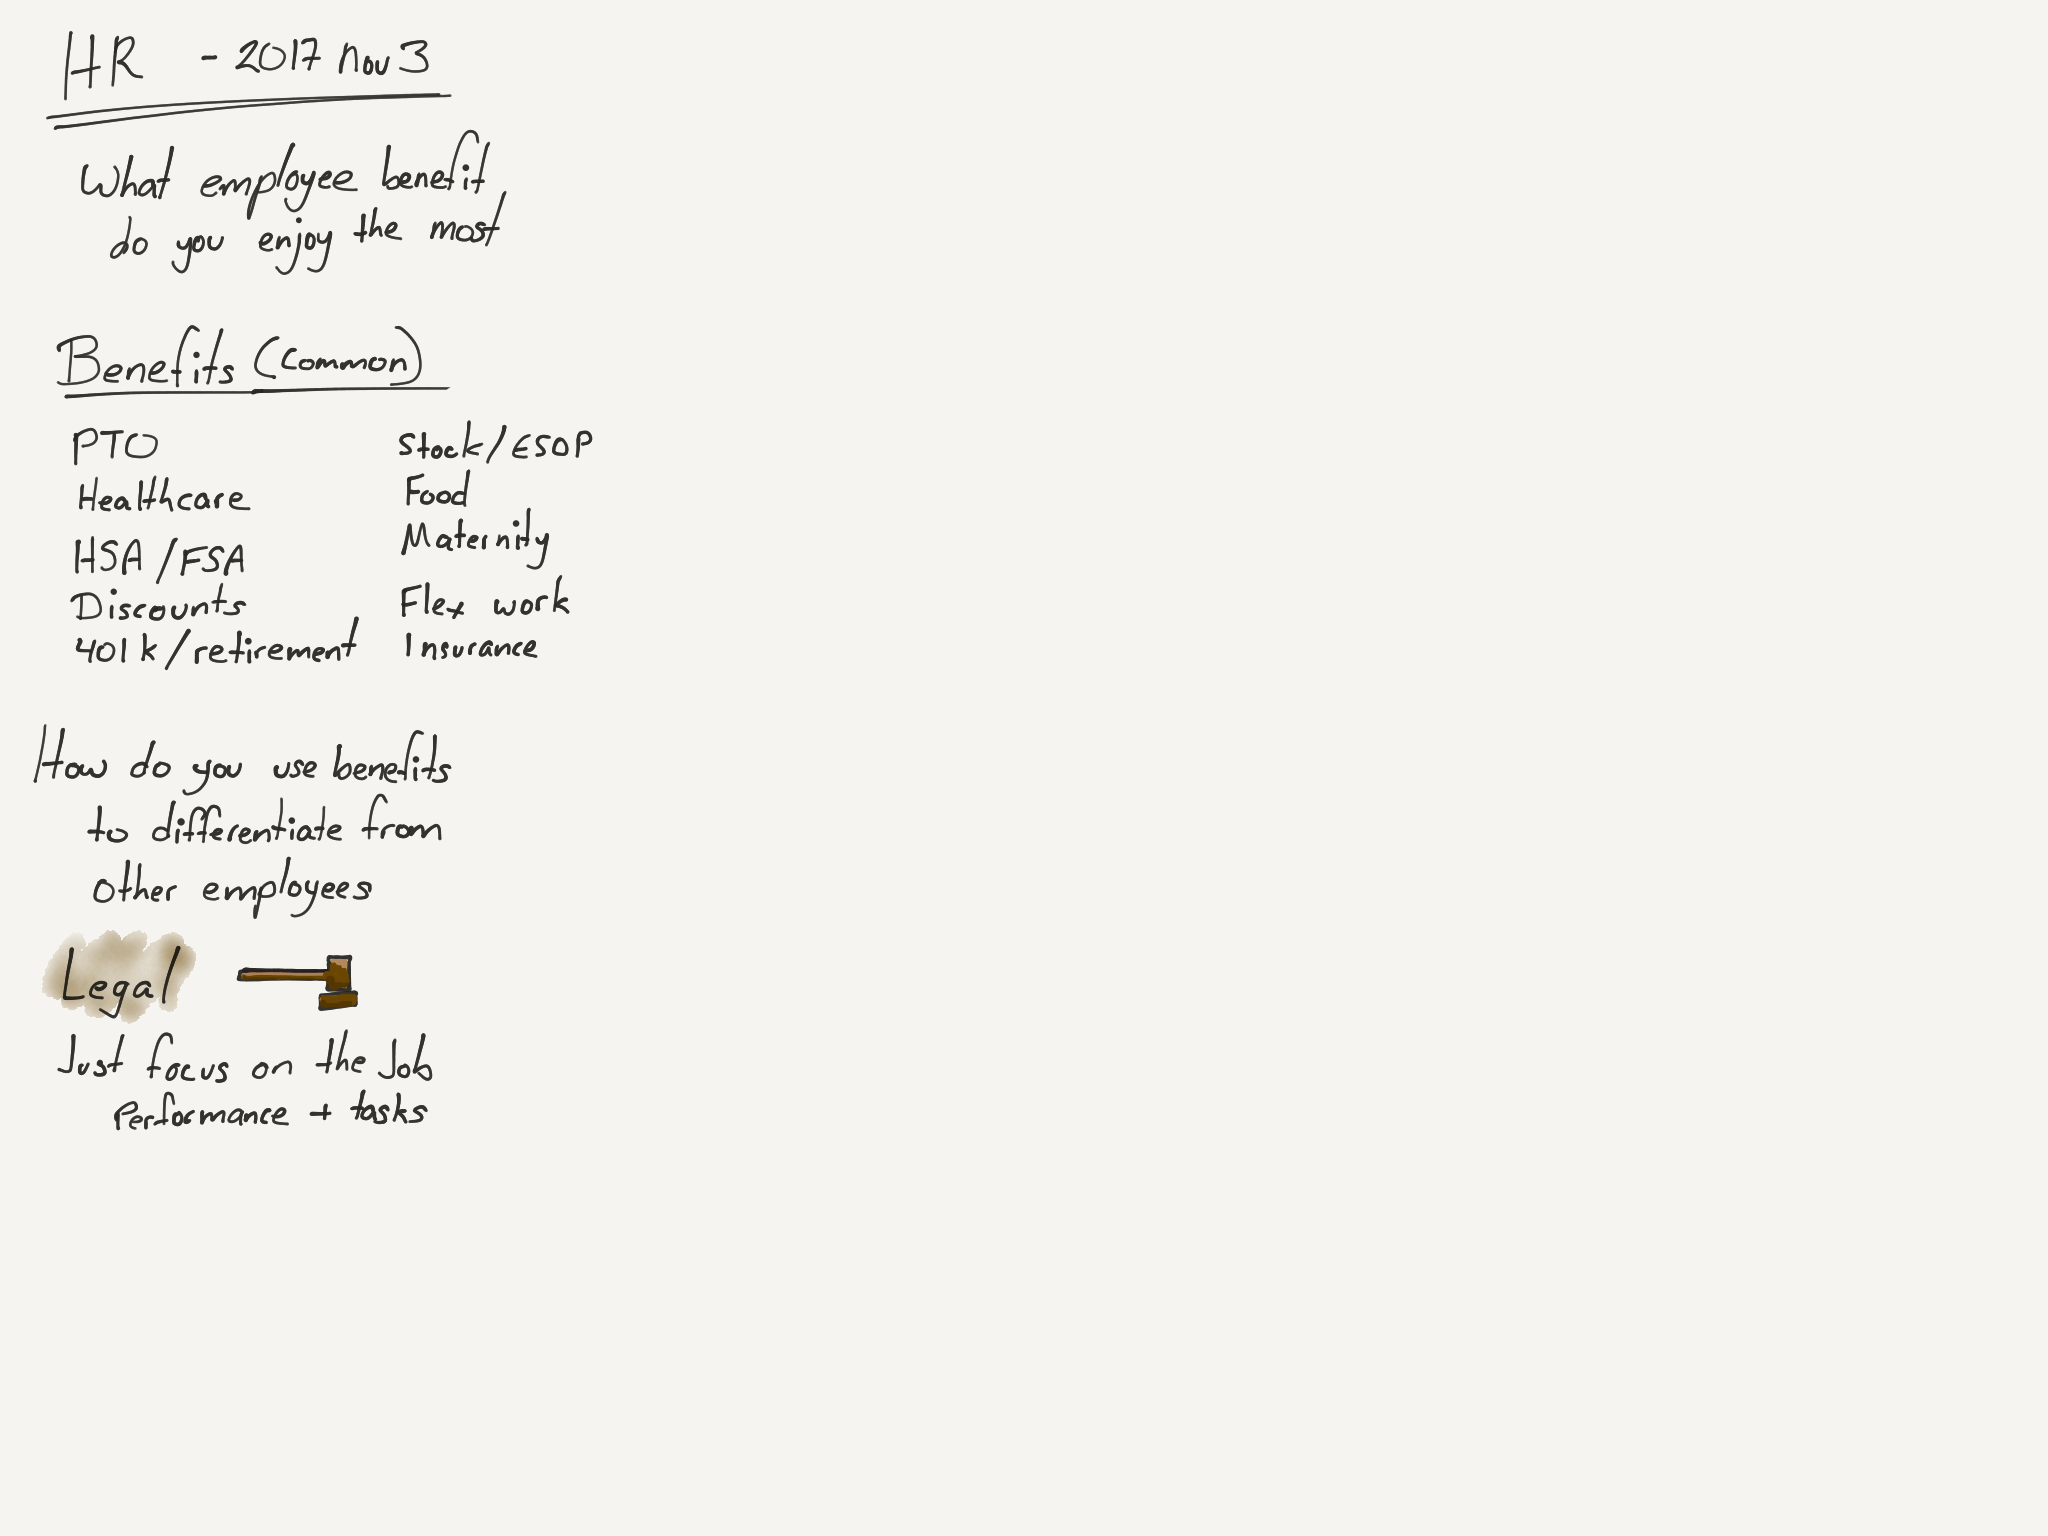 HR - 2017 nov 3
What employee benefit
do you enjoy the most
Benefits (common)
PTO
Healthcare
HSA/FSA
Discounts
401k/retirement
Stock/ESOP
Food
Maternity
Flex work
Insurance
How do you use benefits
to differentiate from
other employees
Legal
Just focus on the Job
Performance + tasks